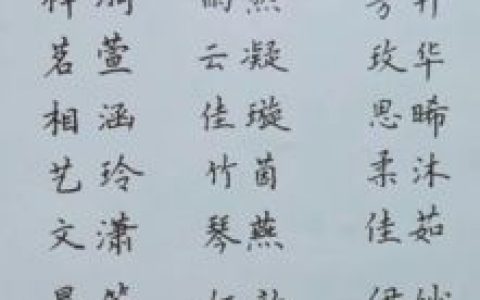 茗萱 云凝 玫华
相涵 佳璇 思晞
艺玲 竹茵 柔沐
文潇 琴燕 佳茹